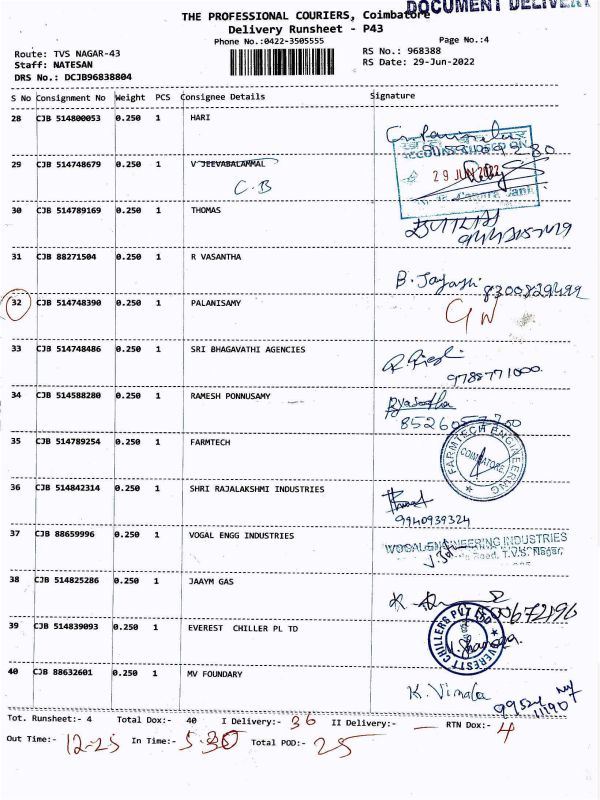 DOCUMENT DELIVERY
THE PROFESSIONAL COURIERS, Coimbatore
Delivery Runsheet - P43
Phone No.:0422-3505555
Page No.:4
Route: TVS NAGAR-43
RS No.: 968388
Staff: NATESAN
RS Date: 29-Jun-2022
DRS No.: DCJB96838804
S No Consignment No Weight PCS Consignee Details Signature
28 CJB 514800053 0.250 1 HARI
29 CJB 514748679 0.250 1 V JEEVABALAMMAL
29 JUN 2022
C.B
30 CJB 514789169 0.250 1 THOMAS
31 CJB 88271504 0.250 1 R VASANTHA
B. Jayashri 8300829499
32 CJB 514748390 0.250 1 PALANISAMY
33 CJB 514748486 0.250 1 SRI BHAGAVATHI AGENCIES
9788771000
34 CJB 514588280 0.250 1 RAMESH PONNUSAMY
35 CJB 514789254 0.250 1 FARMTECH
FARMTECH ENGINEERING
COIMBATORE
36 CJB 514842314 0.250 1 SHRI RAJALAKSHMI INDUSTRIES
9940939324
37 CJB 88659996 0.250 1 VOGAL ENGG INDUSTRIES
VOGAL ENGINEERING INDUSTRIES
Road, T.V.S. Nagar
38 CJB 514825286 0.250 1 JAAYM GAS
39 CJB 514839093 0.250 1 EVEREST CHILLER PL TD
40 CJB 88632601 0.250 1 MV FOUNDARY
K. Vimala
Tot. Runsheet:- 4 Total Dox:- 40 I Delivery:- 36 II Delivery:- — RTN Dox:- 4
Out Time:- 12-25 In Time:- 5.30 Total POD:- 25